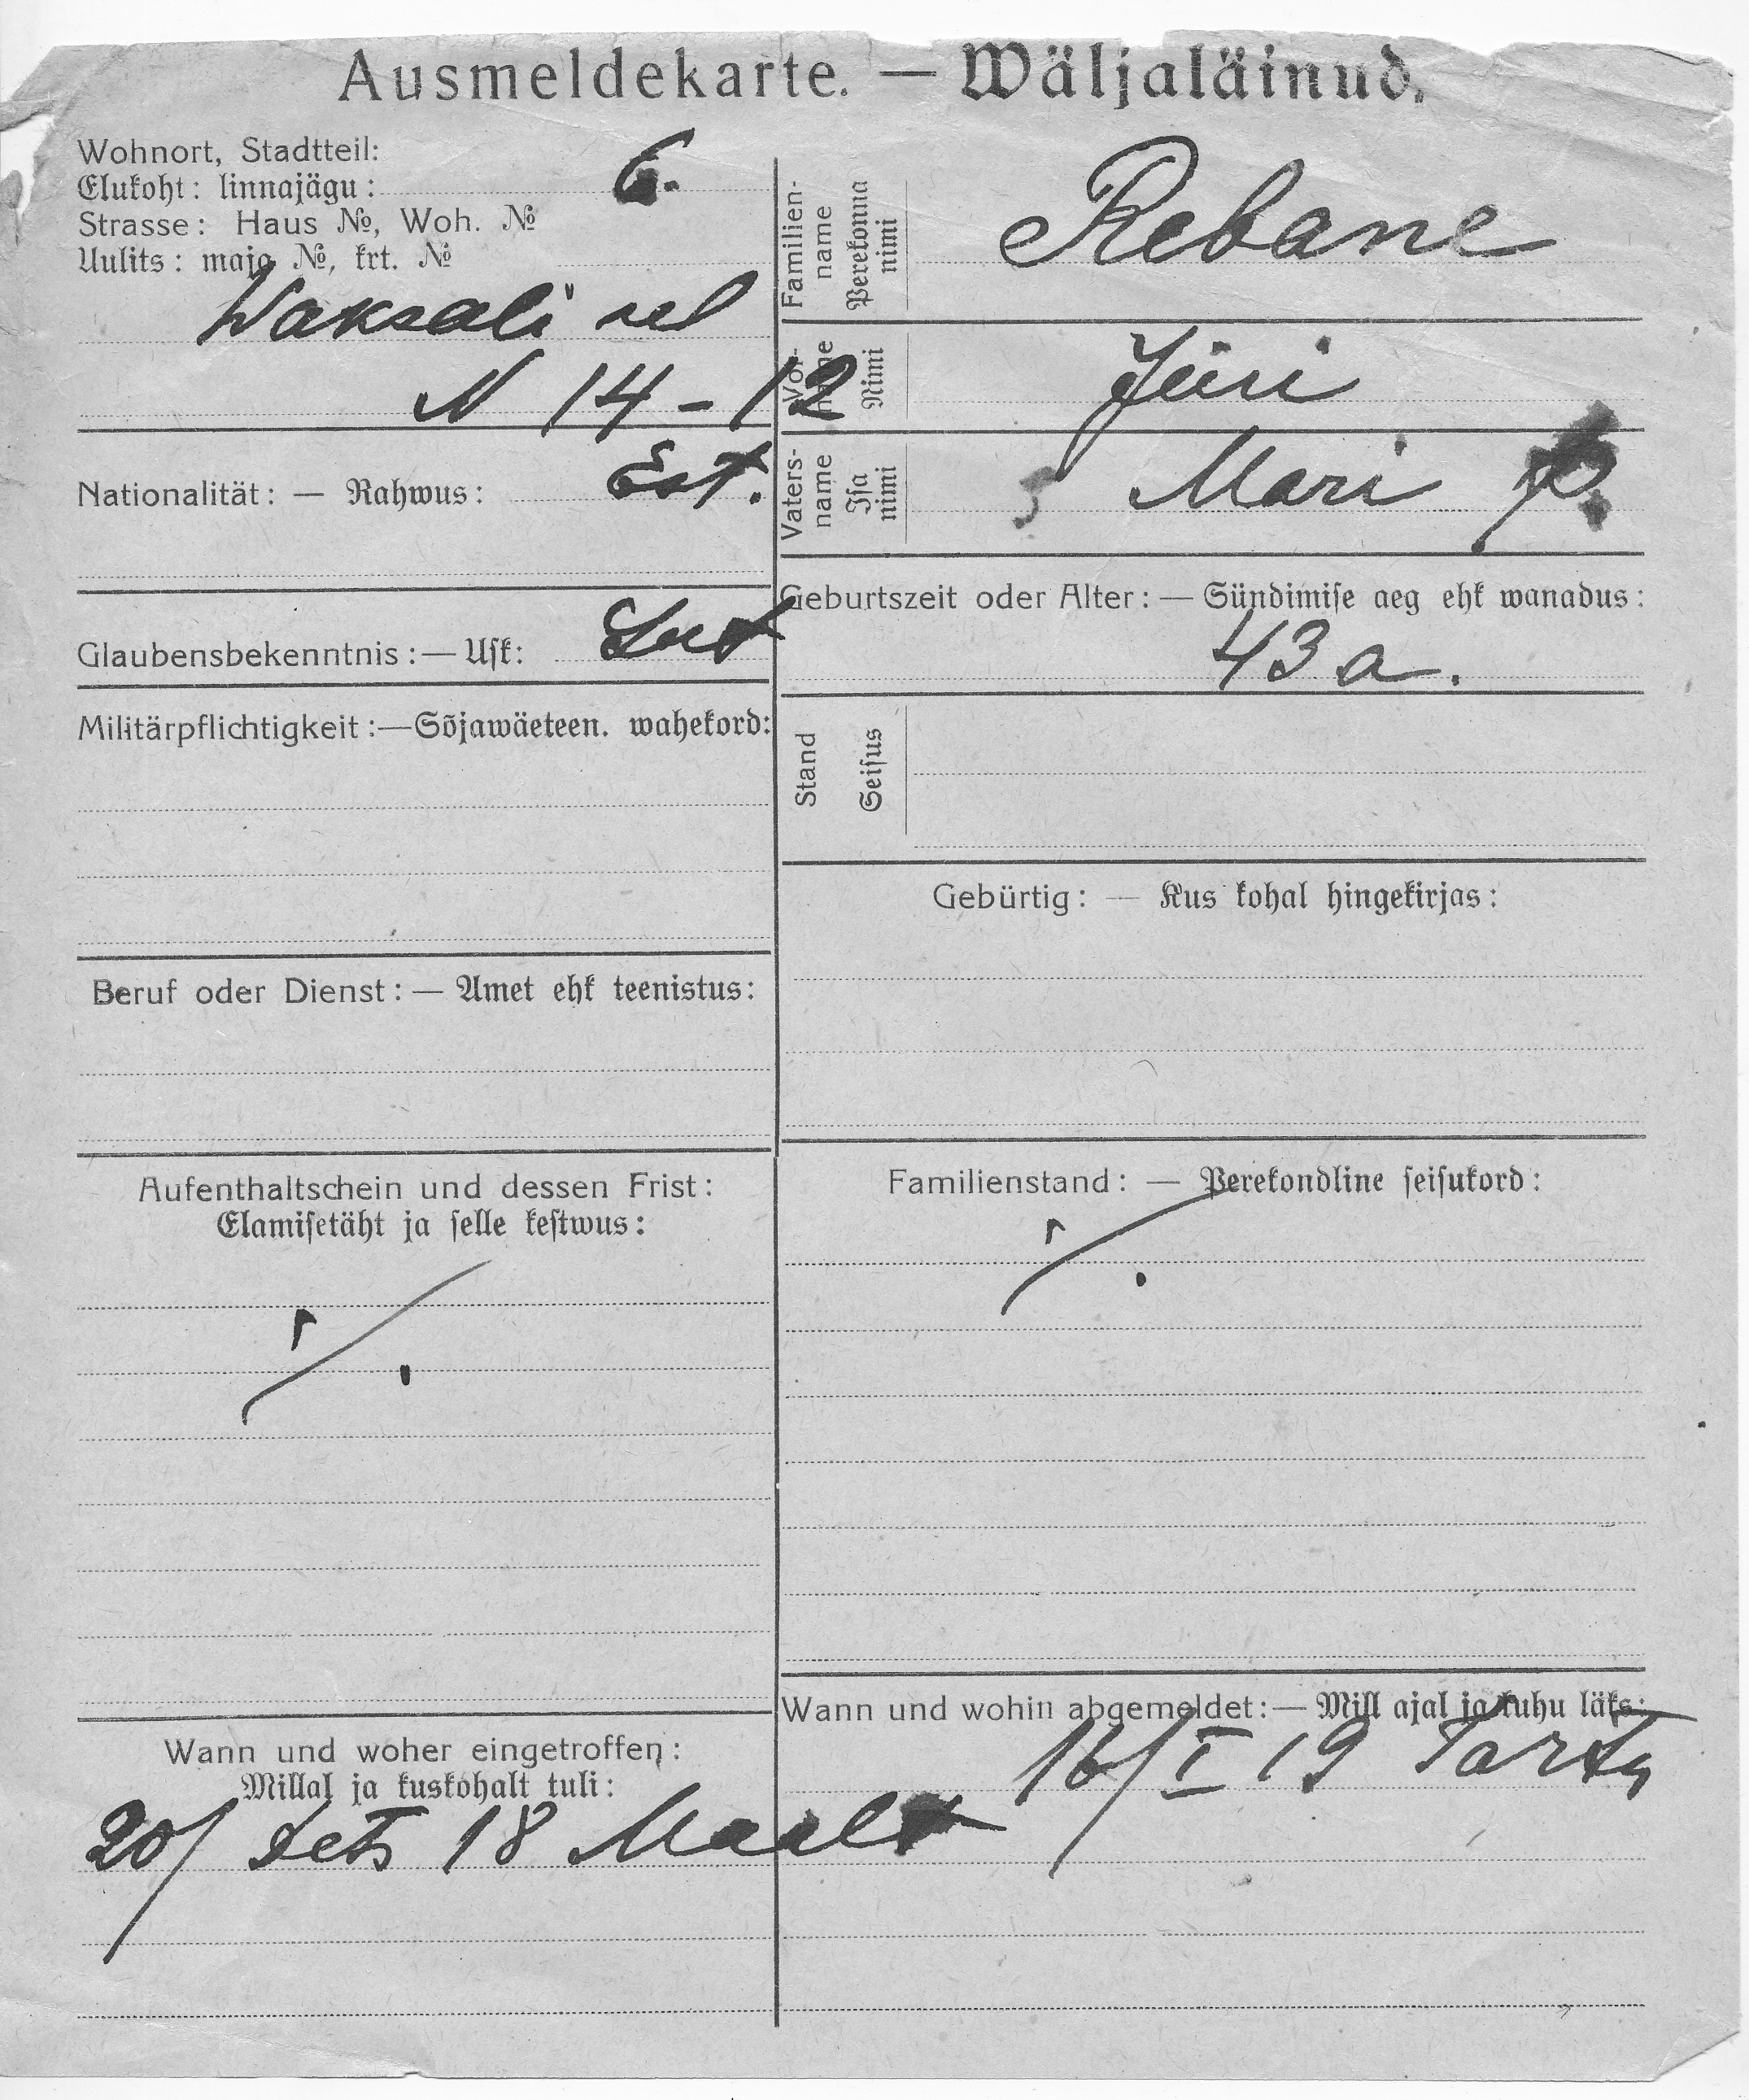 Ausmeldekarte. — Wäljaläinud.
Wohnort, Stadtteil:
Elukoht: linnajägu: 6.
Strasse: Haus №, Woh. №
Uulits: maja №, krt. №
Waksali
N 14-12
Nationalität: — Rahwus: Est.
Glaubensbekenntnis:— Usk: Lut
Militärpflichtigkeit:—Sõjawäeteen. wahekord:
Beruf oder Dienst: — Amet ehk teenistus:
Aufenthaltschein und dessen Frist:
Elamisetäht ja selle kestwus:
Wann und woher eingetroffen:
Millal ja kuskohalt tuli:
20/ Dets 18 Maalt
Familien-
name
Perekonna
nimi
Rebane
Vor-
name
Nimi
Jüri
Vaters-
name
Isa
nimi
Mari p.
Geburtszeit oder Alter: — Sündimise aeg ehk wanadus:
43 a.
Stand
Seisus
Gebürtig: — Kus kohal hingekirjas:
Familienstand: — Perekondline seisukord:
Wann und wohin abgemeldet:— Mill ajal ja kuhu läks:
16/I 19 Tartu